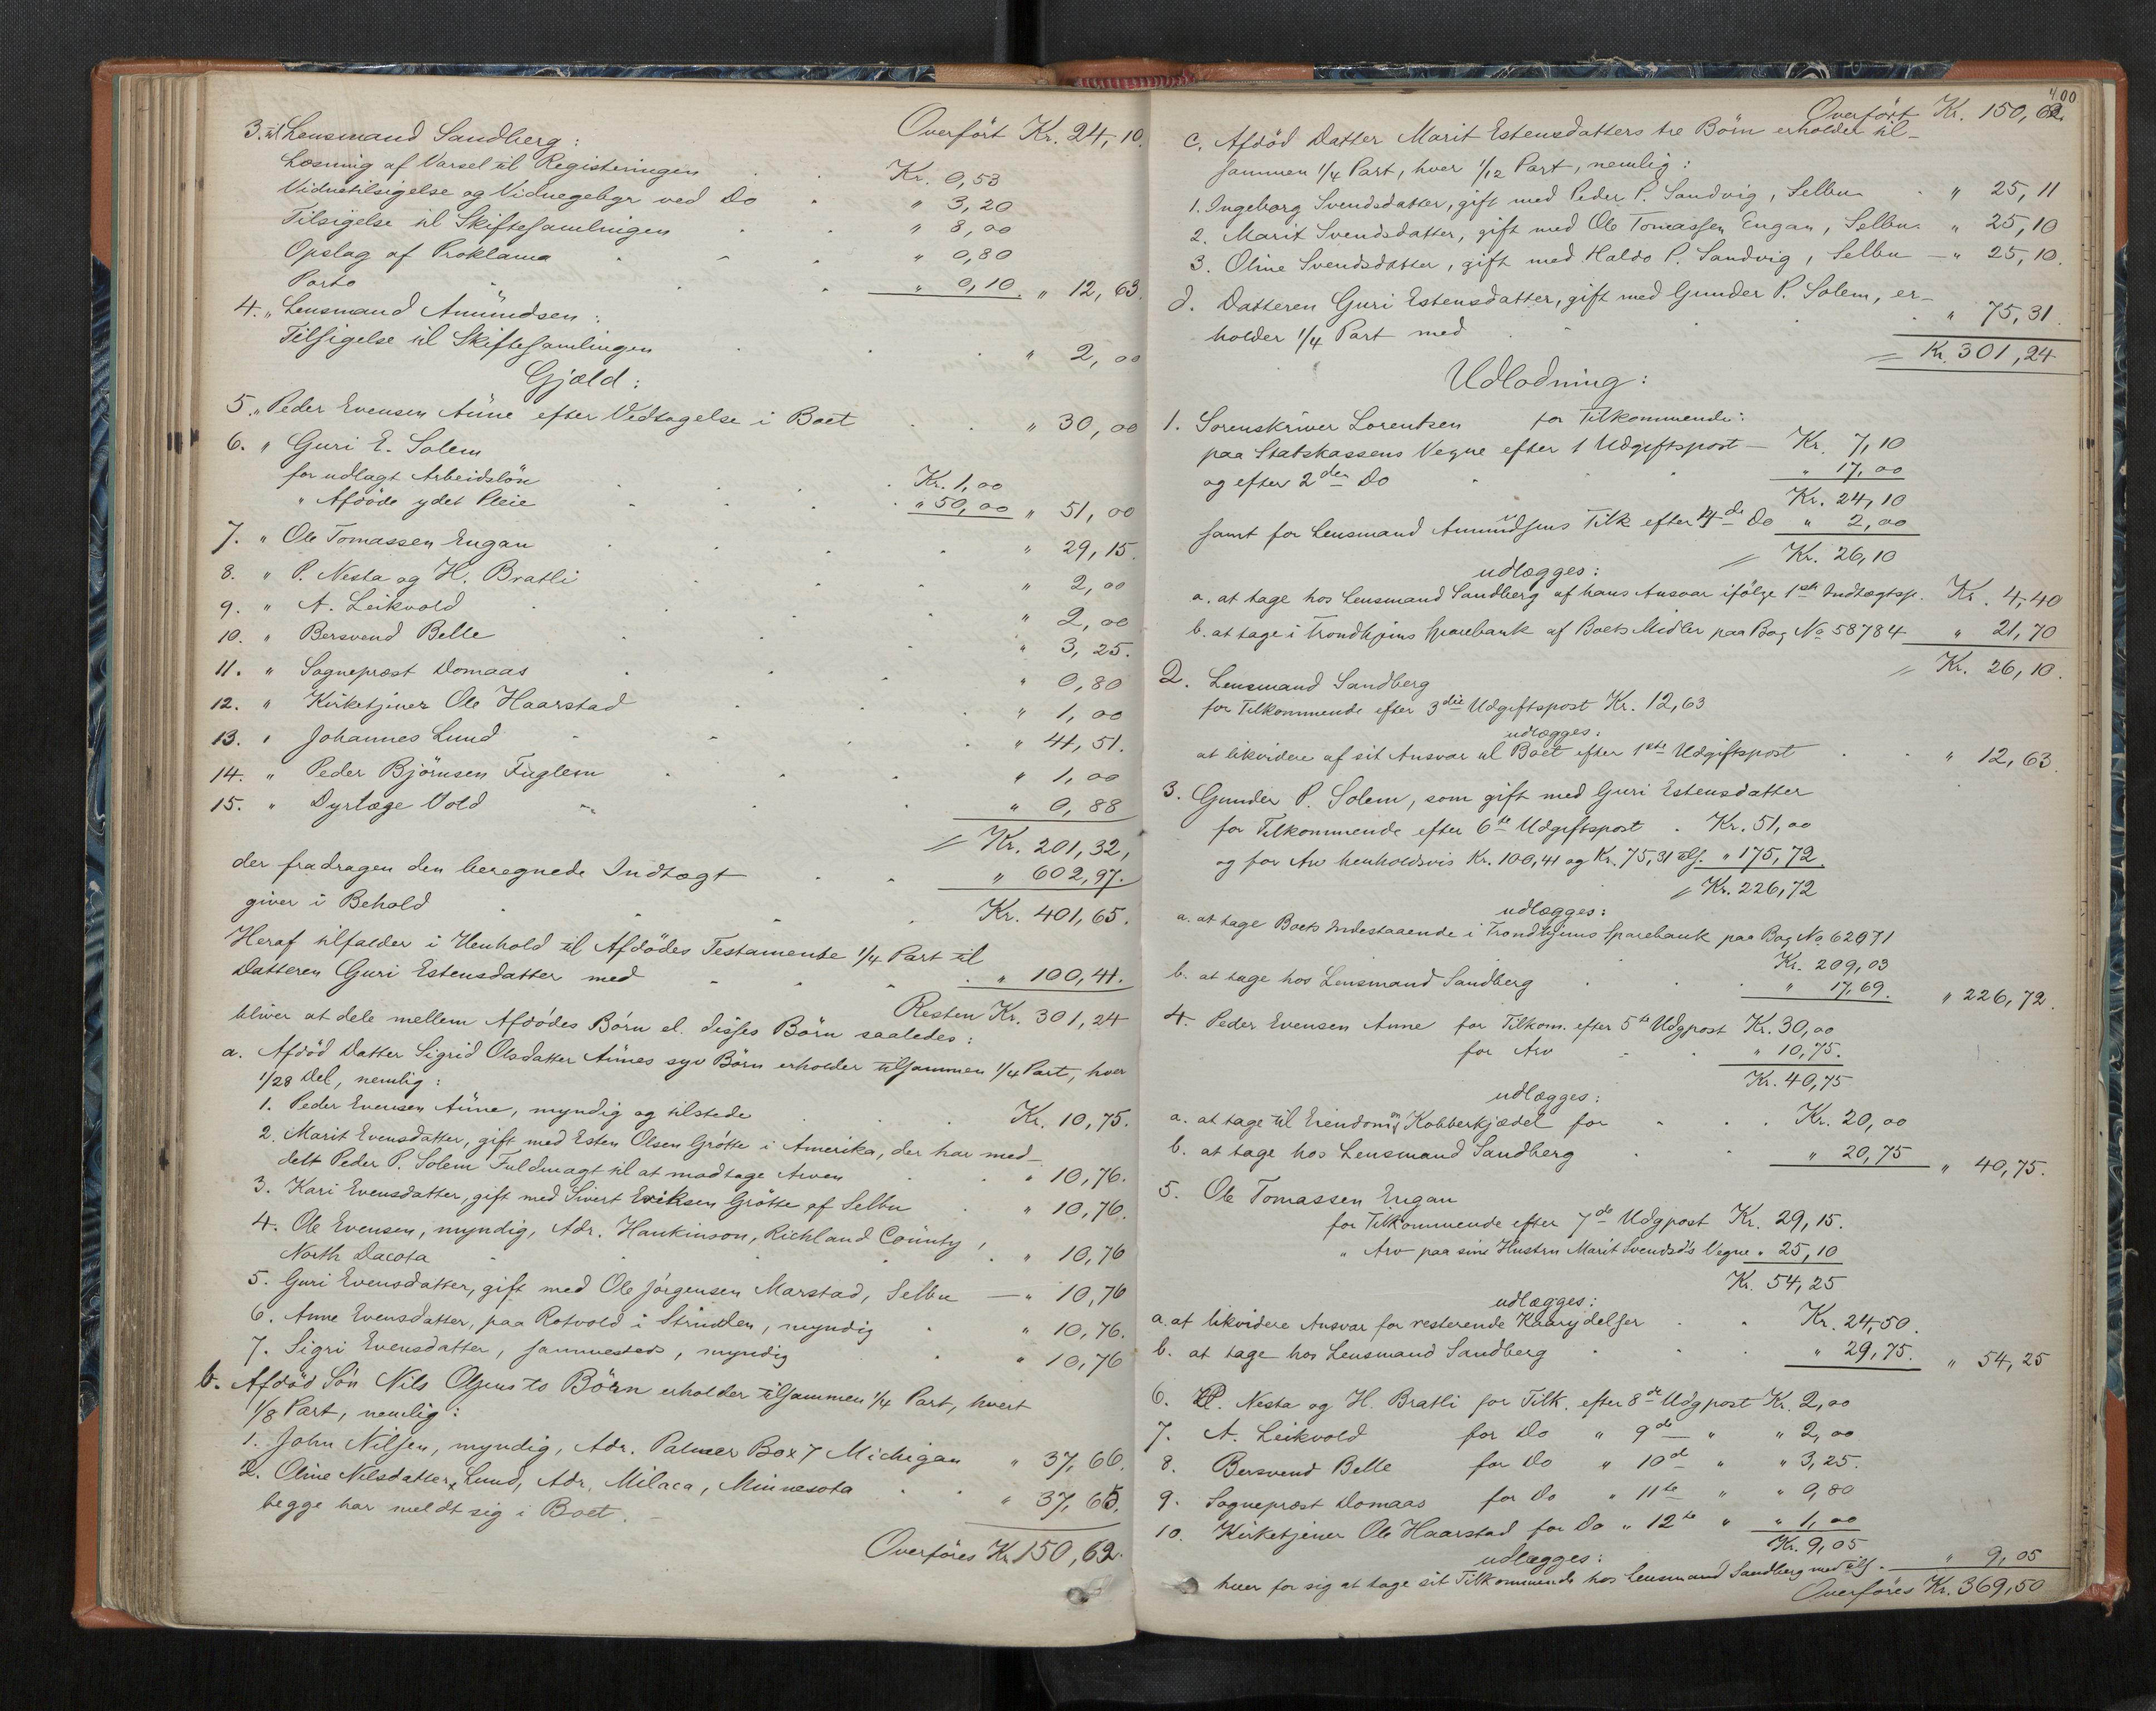 Overført Kr. 24,10.
3. til Lensmand Sandberg:
Læsning af Varsel til Registeringen Kr. 0,53
Vidnetilsigelse og Vidnegebyr ved Do " 3,20
Tilsigelse til Skiftesamlingen " 8,00
Opslag af Proklama " 0,80
Porto " 0,10. " 12,63.
4. " Lensmand Amundsen:
Tilsigelse til Skiftesamlingen " 2,00
Gjæld:
5. " Peder Evensen Aune efter Vedtagelse i Boet " 30,00
6. " Guri E. Solem
for udlagt Arbeidsløn Kr. 1,00
" Afdøde ydet Pleie " 50,00 " 51,00
7. " Ole Tomassen Engan " 29,15.
8. " P. Nesta og H. Bratli " 2,00
9. " A. Leikvold " 2,00
10. " Bersvend Belle " 3,25.
11. " Sogneprest Domaas " 0,80
12. " Kirketjener Ole Haarstad " 1,00
13. " Johannes Lund " 41,51.
14. " Peder Bjørnsen Fuglem " 1,00
15. " Dyrlæge Vold " 0,88
= Kr. 201,32,
der fradragen den beregnede Indtægt " 602,97.
giver i Behold Kr. 401,65.
Heraf tilfalder i Henhold til Afdødes Testamente 1/4 Part til
Datteren Guri Estensdatter med " 100,41.
Resten Kr. 301,24
bliver at dele mellem Afdødes Børn el. disses Børn saaledes:
a. Afdød Datter Sigrid Olsdatter Aunes syv Børn erholder tilsammen 1/4 Part, hver
1/28 Del, nemlig:
1. Peder Evensen Aune, myndig og tilstede Kr. 10,75.
2. Marit Evensdatter, gift med Esten Olsen Grøtte i Amerika, der har med-
delt Peder P. Solem Fuldmagt til at modtage Arven " 10,76.
3. Kari Evensdatter, gift med Sivert Eriksen Grøtte af Selbu " 10,76.
4. Ole Evensen, myndig, Adr. Hankinson, Richland County,
North Dacota " 10,76
5. Guri Evensdatter, gift med Ole Jørgensen Marstad, Selbu — " 10,76
6. Anne Evensdatter, paa Rotvold i Strinden, myndig " 10,76.
7. Sigri Evensdatter, sammesteds, myndig " 10,76
b. Afdød Søn Nils Olsens to Børn erholder tilsammen 1/4 Part, hvert
1/8 Part, nemlig:
1. John Nilsen, myndig, Adr. Palmer Box 7 Michigan " 37,66.
2. Oline Nilsdatter Lund, Adr. Milaca, Minnesota " 37,65.
begge har meldt sig i Boet.
Overføres Kr. 150,62.
400
Overført Kr. 150,62.
c. Afdød Datter Marit Estensdatters tre Børn erholder til-
sammen 1/4 Part, hver 1/12 Part, nemlig:
1. Ingeborg Svendsdatter, gift med Peder P. Sandvig, Selbu " 25,11
2. Marit Svendsdatter, gift med Ole Tomassen Engan, Selbu " 25,10
3. Oline Svendsdatter, gift med Haldo P. Sandvig, Selbu — " 25,10.
d. Datteren Guri Estensdatter, gift med Gunder P. Solem, er-
holder 1/4 Part med " 75,31.
= Kr. 301,24
Udlodning:
1. Sorenskriver Lorentzen for Tilkommende:
paa Statskassens Vegne efter 1 Udgiftspost — Kr. 7,10
og efter 2den Do " 17,00
Kr. 24,10
samt for Lensmand Amundsens Tilk efter 4de Do " 2,00
= Kr. 26,10
udlægges:
a. at tage hos Lensmand Sandberg af hans Ansvar ifølge 1ste Indtægtsp. Kr. 4,40
b. at tage i Trondhjems Sparebank af Boets Midler paa Bog No 58784 " 21,70
= Kr. 26,10.
2. Lensmand Sandberg
for Tilkommende efter 3die Udgiftspost Kr. 12,63
udlægges:
at likvidere af sit Ansvar til Boet efter 1ste Udgiftspost " 12,63.
3. Gunder P. Solem, som gift med Guri Estensdatter
for Tilkommende efter 6te Udgiftspost . Kr. 51,00
og for Arv henholdsvis Kr. 100,41 og Kr. 75,31 tils. " 175,72.
= Kr. 226,72
udlægges:
a. at tage Boets Indestaaende i Trondhjems Sparebank paa Bog No 62071
Kr. 209,03
b. at tage hos Lensmand Sandberg " 17,69. " 226,72.
4. Peder Evensen Aune for Tilkom. efter 5te Udgpost Kr. 30,00
for Arv " 10,75.
Kr. 40,75
udlægges:
a. at tage til Eiendom Kobberkjedel for Kr. 20,00
b. at tage hos Lensmand Sandberg " 20,75 " 40,75.
5. Ole Tomassen Engan
for Tilkommende efter 7de Udgpost Kr. 29,15.
" Arv paa sin Hustru Marit Svendsd's Vegne " 25,10
Kr. 54,25
udlægges:
a. at likvidere Ansvar for resterende Kaarydelser Kr. 24,50.
b. at tage hos Lensmand Sandberg " 29,75. " 54,25
6. P. Nesta og H. Bratli for Tilk. efter 8de Udgpost Kr. 2,00
7. A. Leikvold for Do " 9de " " 2,00
8. Bersvend Belle for Do " 10de " " 3,25.
9. Sogneprest Domaas for Do " 11te " " 0,80
10. Kirketjener Ole Haarstad for Do " 12te " " 1,00
Kr. 9,05
udlægges:
hver for sig at tage sit Tilkommende hos Lensmand Sandberg med tils. " 9,05
Overføres Kr. 369,50